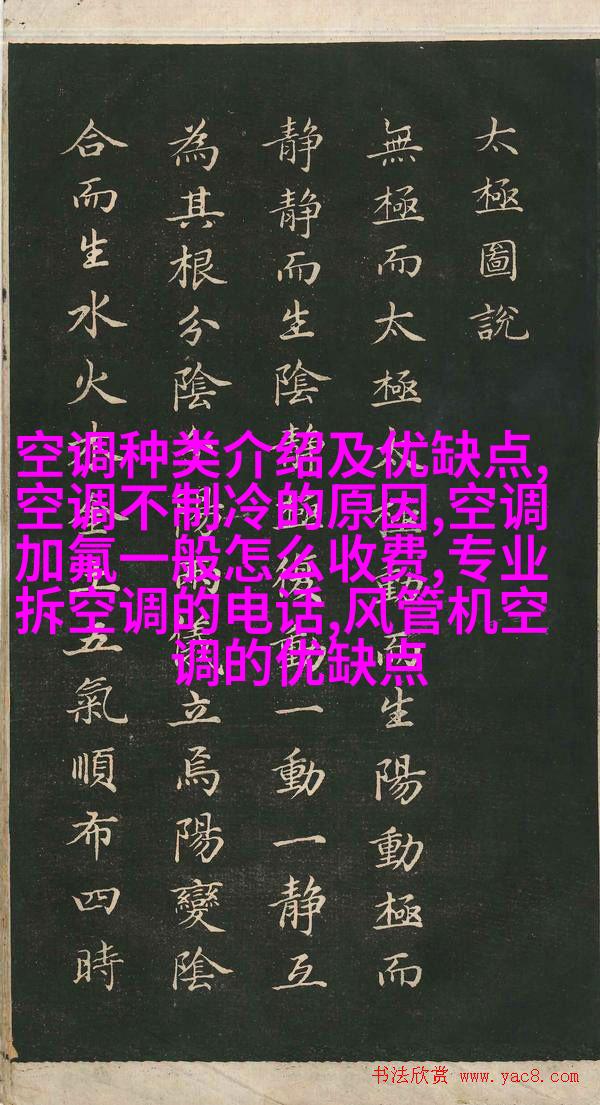 太極圖說
無極而太極太極動而生陽動極而
静静而生陰静極復動一動一静互
為其根分陰分陽兩儀立焉陽變陰
合而生水火木金土五氣順布四時
空调种类介绍及优缺点,
空调不制冷的原因,空调
加氟一般怎么收费,专业
拆空调的电话,风管机空
调的优缺点
书法欣赏 www.yac8.com